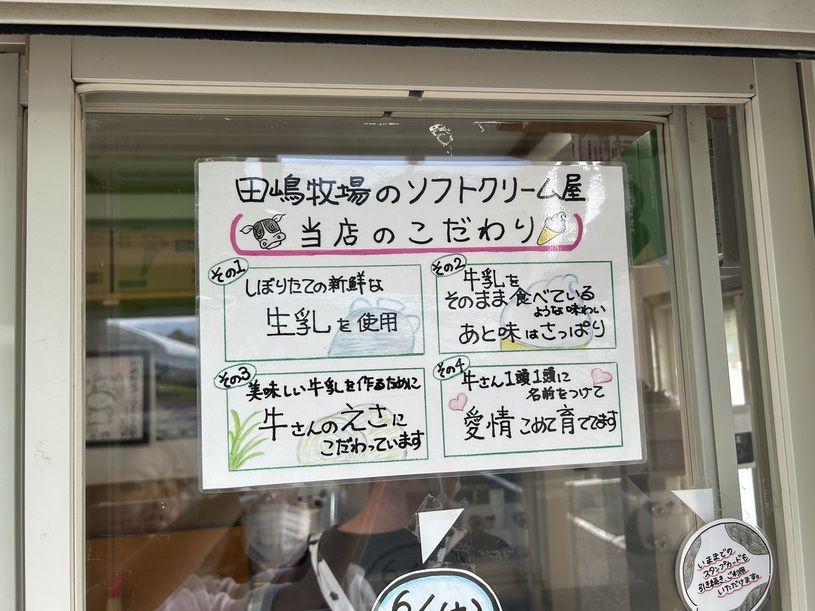 田嶋牧場のソフトクリーム屋
当店のこだわり
その1
しぼりたての新鮮な
生乳を使用
その2
牛乳を
そのまま食べている
ような味わい
あと味はさっぱり
その3
美味しい牛乳を作るために
牛さんのえさに
こだわっています
その4
牛さん1頭1頭に
名前をつけて
愛情こめて育ててます
いままでの
スタンプカードも
引き続きご利用
いただけます。